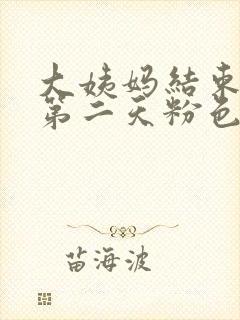 大姨妈结束
第二天粉色
苗海波